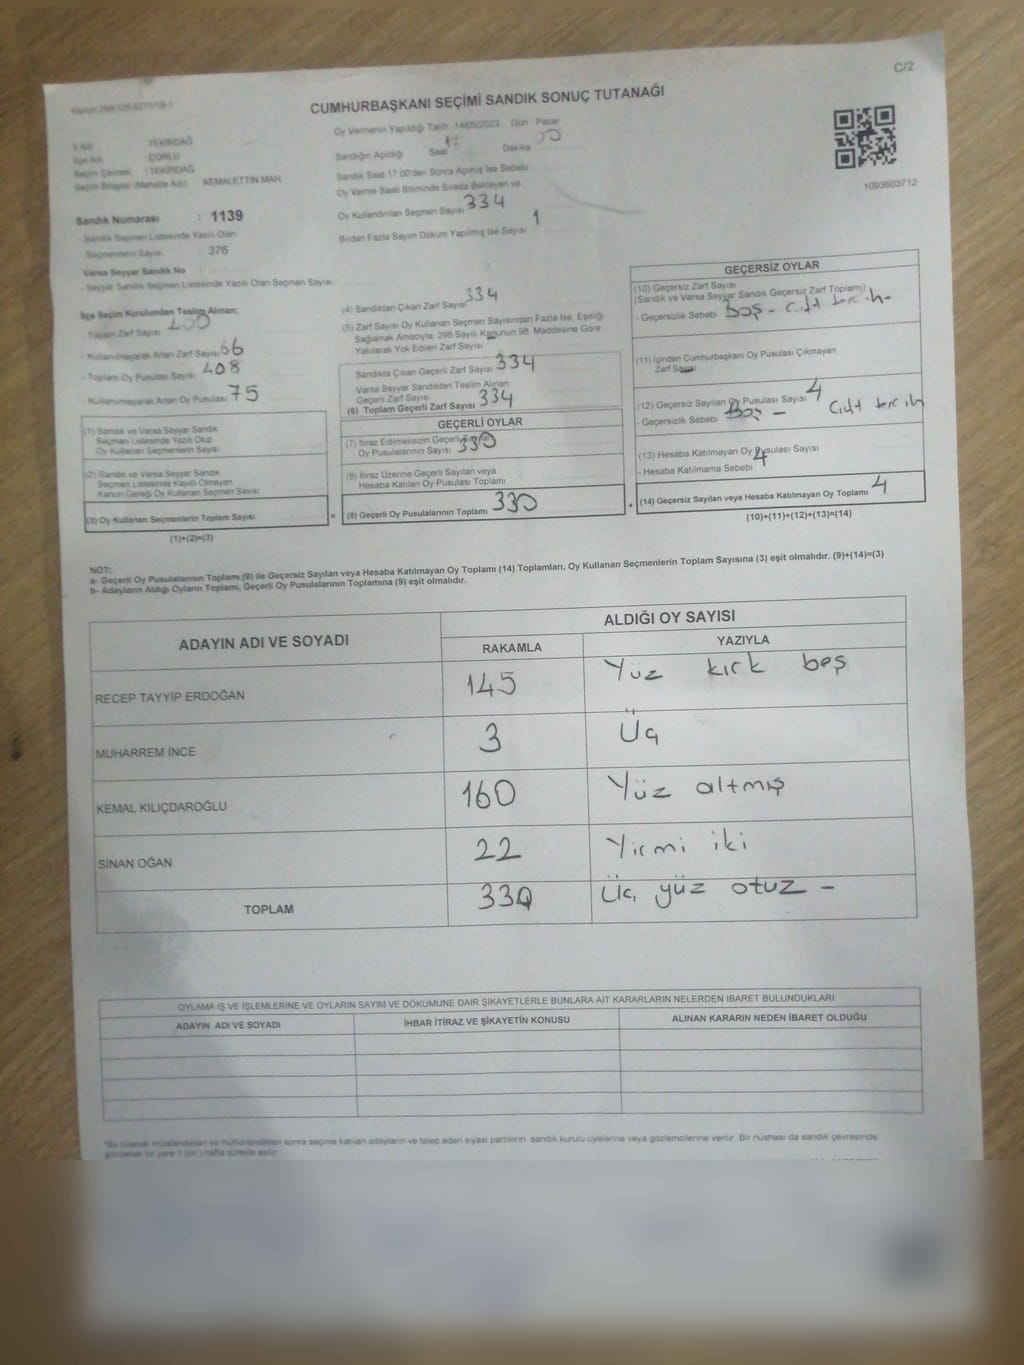 C/2
CUMHURBAŞKANI SEÇİMİ SANDIK SONUÇ TUTANAĞI
Oy Vermenin Yapıldığı Tarih 14/05/2023 Gün Pazar
Sandığın Açıldığı Saat Dakika 00
Sandık Saat 17:00'den Sonra Açılmış İse Sebebi
Oy Verme Saati Bitiminde Sırada Bekleyen ve
Oy Kullandırılan Seçmen Sayısı 334
Birden Fazla Sayım Döküm Yapılmış İse Sayısı 1
İli Adı TEKİRDAĞ
İlçe Adı ÇORLU
Seçim Çevresi : TEKİRDAĞ
Seçim Bölgesi (Mahalle Adı) KEMALETTİN MAH.
Sandık Numarası : 1139
- Sandık Seçmen Listesinde Yazılı Olan
Seçmenlerin Sayısı 376
Varsa Seyyar Sandık No
- Seyyar Sandık Seçmen Listesinde Yazılı Olan Seçmen Sayısı
İlçe Seçim Kurulundan Teslim Alınan;
Toplam Zarf Sayısı 400
- Kullanılmayarak Artan Zarf Sayısı 66
- Toplam Oy Pusulası Sayısı 408
- Kullanılmayarak Artan Oy Pusulası 75
(1) Sandık ve Varsa Seyyar Sandık
Seçmen Listesinde Yazılı Olup
Oy Kullanan Seçmenlerin Sayısı
(2) Sandık ve Varsa Seyyar Sandık
Seçmen Listesinde Kayıtlı Olmayan
Kanun Gereği Oy Kullanan Seçmen Sayısı
(3) Oy Kullanan Seçmenlerin Toplam Sayısı
(1)+(2)=(3)
=
(4) Sandıktan Çıkan Zarf Sayısı 334
(5) Zarf Sayısı Oy Kullanan Seçmen Sayısından Fazla İse, Eşitliği
Sağlamak Amacıyla, 298 Sayılı Kanunun 98. Maddesine Göre
Yakılarak Yok Edilen Zarf Sayısı
Sandıkta Çıkan Geçerli Zarf Sayısı 334
Varsa Seyyar Sandıktan Teslim Alınan
Geçerli Zarf Sayısı
(6) Toplam Geçerli Zarf Sayısı 334
GEÇERLİ OYLAR
(7) İtiraz Edilmeksizin Geçerli Sayılan
Oy Pusulalarının Sayısı 330
(8) İtiraz Üzerine Geçerli Sayılan veya
Hesaba Katılan Oy Pusulası Toplamı
(9) Geçerli Oy Pusulalarının Toplamı 330
+
1093603712
GEÇERSİZ OYLAR
(10) Geçersiz Zarf Sayısı
(Sandık ve Varsa Seyyar Sandık Geçersiz Zarf Toplamı)
- Geçersizlik Sebebi Boş - Çift tercih
(11) İçinden Cumhurbaşkanı Oy Pusulası Çıkmayan
Zarf Sayısı
(12) Geçersiz Sayılan Oy Pusulası Sayısı 4
- Geçersizlik Sebebi Boş - Çift tercih
(13) Hesaba Katılmayan Oy Pusulası Sayısı
- Hesaba Katılmama Sebebi 4
(14) Geçersiz Sayılan veya Hesaba Katılmayan Oy Toplamı 4
(10)+(11)+(12)+(13)=(14)
NOT:
a- Geçerli Oy Pusulalarının Toplamı (9) ile Geçersiz Sayılan veya Hesaba Katılmayan Oy Toplamı (14) Toplamları, Oy Kullanan Seçmenlerin Toplam Sayısına (3) eşit olmalıdır. (9)+(14)=(3)
b- Adayların Aldığı Oyların Toplamı, Geçerli Oy Pusulalarının Toplamına (9) eşit olmalıdır.
ADAYIN ADI VE SOYADI ALDIĞI OY SAYISI
RAKAMLA YAZIYLA
RECEP TAYYİP ERDOĞAN 145 Yüz kırk beş
MUHARREM İNCE 3 Üç
KEMAL KILIÇDAROĞLU 160 Yüz altmış
SİNAN OĞAN 22 Yirmi iki
TOPLAM 330 Üç yüz otuz -
OYLAMA İŞ VE İŞLEMLERİNE VE OYLARIN SAYIM VE DÖKÜMÜNE DAİR ŞİKAYETLERLE BUNLARA AİT KARARLARIN NELERDEN İBARET BULUNDUKLARI
ADAYIN ADI VE SOYADI İHBAR İTİRAZ VE ŞİKAYETİN KONUSU ALINAN KARARIN NEDEN İBARET OLDUĞU
*Bu tutanak imzalandıktan ve mühürlendikten sonra seçime katılan adayların ve talep eden siyasi partilerin sandık kurulu üyelerine veya gözlemcilerine verilir. Bir nüshası da sandık çevresinde
görülecek bir yere 1 (bir) hafta süreyle asılır.